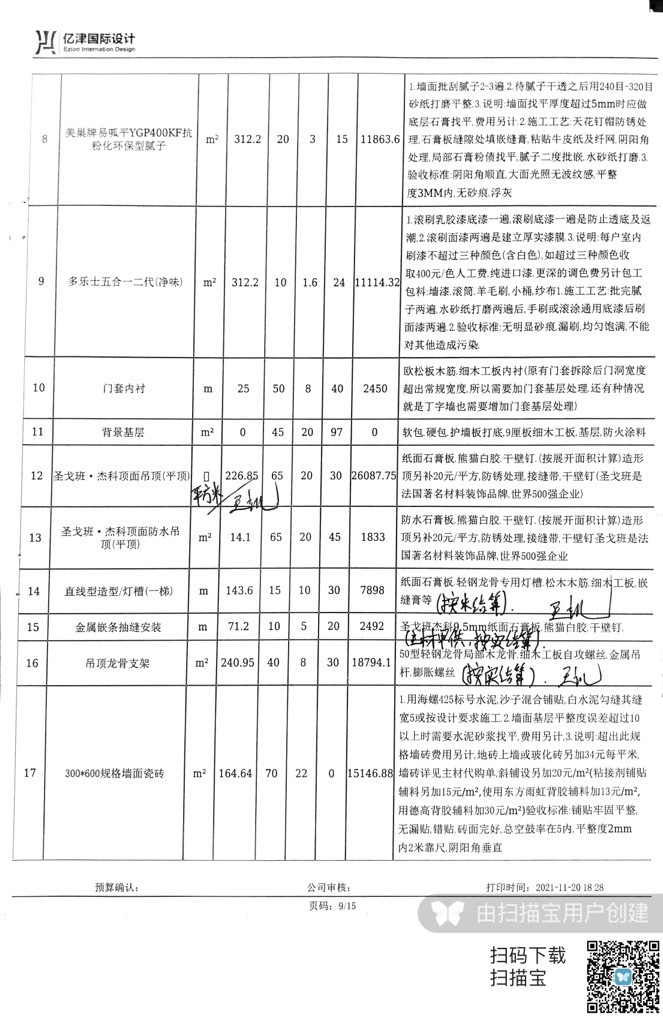 亿津国际设计
Ezion International Design
8 美巢牌易呱平YGP400KF抗粉化环保型腻子 m² 312.2 20 3 15 11863.6
1.墙面批刮腻子2-3遍.2.待腻子干透之后用240目-320目
砂纸打磨平整.3.说明:墙面找平厚度超过5mm时应做
底层石膏找平,费用另计2.施工工艺:天花钉帽防锈处
理,石膏板缝隙处填嵌缝膏,粘贴牛皮纸及纤网,阴阳角
处理,局部石膏粉债找平,腻子二度批嵌,水砂纸打磨.3.
验收标准:阴阳角顺直,大面光照无波纹感,平整
度3MM内,无砂痕,浮灰
9 多乐士五合一二代(净味) m² 312.2 10 1.6 24 11114.32
1.滚刷乳胶漆底漆一遍,滚刷底漆一遍是防止透底及返
潮,2.滚刷面漆两遍是建立厚实漆膜.3.说明:每户室内
刷漆不超过三种颜色(含白色),如超过三种颜色收
取400元/色人工费,纯进口漆.更深的调色费另计包工
包料:墙漆.滚筒.羊毛刷,小桶,纱布1.施工工艺:批完腻
子两遍,水砂纸打磨两遍后,手刷或滚涂通用底漆后刷
面漆两遍.2.验收标准:无明显砂痕,漏刷,均匀饱满,不能
对其他造成污染.
10 门套内衬 m 25 50 8 40 2450
欧松板木筋.细木工板内衬(原有门套拆除后门洞宽度
超出常规宽度,所以需要加门套基层处理.还有种情况
就是丁字墙也需要增加门套基层处理)
11 背景基层 m² 0 45 20 97 0 软包.硬包.护墙板打底,9厘板细木工板.基层,防火涂料
12 圣戈班·杰科顶面吊顶(平顶) 226.85 65 20 30 26087.75
纸面石膏板.熊猫白胶.干壁钉.(按展开面积计算)造形
顶另补20元/平方,防锈处理,接缝带,干壁钉(圣戈班是
法国著名材料装饰品牌,世界500强企业)
平方米
13 圣戈班·杰科顶面防水吊顶(平顶) m² 14.1 65 20 45 1833
防水石膏板.熊猫白胶.干壁钉.(按展开面积计算)造形
顶另补20元/平方,防锈处理,接缝带,干壁钉圣戈班是法
国著名材料装饰品牌,世界500强企业
14 直线型造型/灯槽(一梯) m 143.6 15 10 30 7898
纸面石膏板.轻钢龙骨专用灯槽.松木木筋.细木工板,嵌
缝膏等 (按米结算).
15 金属嵌条抽缝安装 m 71.2 10 5 20 2492 圣戈班杰科9.5mm纸面石膏板.熊猫白胶.干壁钉.
(主材甲供,按实结算).
16 吊顶龙骨支架 m² 240.95 40 8 30 18794.1
50型轻钢龙骨局部木龙骨.细木工板自攻螺丝.金属吊
杆.膨胀螺丝 (按实结算).
17 300*600规格墙面瓷砖 m² 164.64 70 22 0 15146.88
1.用海螺425标号水泥,沙子混合铺贴,白水泥勾缝其缝
宽5或按设计要求施工.2.墙面基层平整度误差超过10
以上时需要水泥砂浆找平,费用另计,3.说明:超出此规
格墙砖费用另计,地砖上墙或玻化砖另加34元每平米,
墙砖详见主材代购单,斜铺设另加20元/m²(粘接剂铺贴
辅料另加15元/m²,使用东方雨虹背胶辅料加13元/m²,
用德高背胶辅料加30元/m²)验收标准:铺贴牢固平整,
无漏贴,错贴,砖面完好,总空鼓率在5内,平整度2mm
内2米靠尺,阴阳角垂直
预算确认: 公司审核: 打印时间: 2021-11-20 18:28
页码: 9/15
由扫描宝用户创建
扫码下载
扫描宝